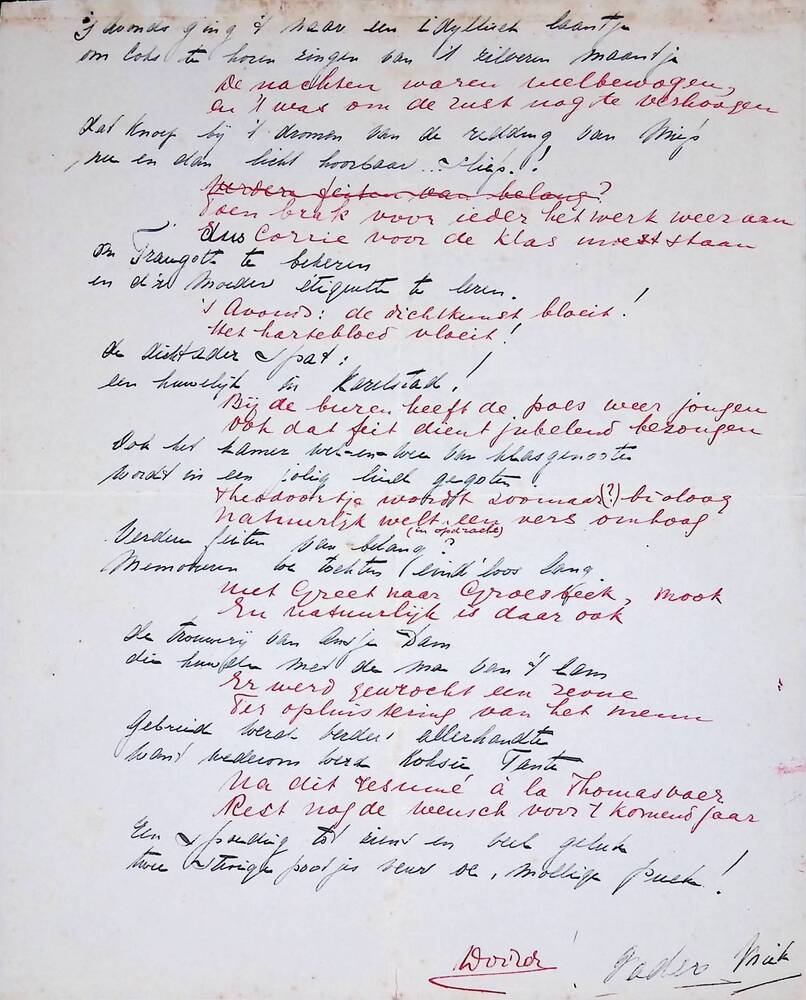 's avonds ging 't naar een idyllisch laantje
om Cobs te horen zingen van 't zilveren maantje
De nachten waren welbewogen,
en 't was om de rust nog te verhoogen
dat Knoep bij 't dromen van de redding van Miep
nu en dan licht hoorbaar ... !
Verdere feiten van belang?
Toen brak voor ieder het werk weer aan
dus Corrie voor de klas moest staan
om Traugott te bekeren
en d'r Moeder étiquette te leren.
's Avonds: de dichtkunst bloeit!
Het hartebloed vloeit!
de dichtader spat:
een huwelijk in Karelstad!
Bij de buren heeft de poes weer jongen
ook dat feit dient jubelend bezongen
Ook het kamer wel-en-wee van klasgenooten
wordt in een jolig lied gegoten
Theodoortje wordt zoomaar (?) bioloog
Natuurlijk welt een vers omhoog
(in opdracht)
Verdere feiten van belang?
Memoreren we tochten eind'loos lang
met Greet naar Groesbeek, Mook
En natuurlijk is daar ook
de trouwerij van Antje Dam
die huwde met de man van 't Lam
Er werd gewrocht een zeune
Ter opluistering van het menu
Gebreid werd verder allerhande
want wederom werd Koksie Tante
Na dit resumé à la Thomasvaer
Rest nog de wensch voor 't komend jaar
Een spoeding tot eind en veel geluk
twee stevige pootjes veur oe, mollige puck!
Vader Miek